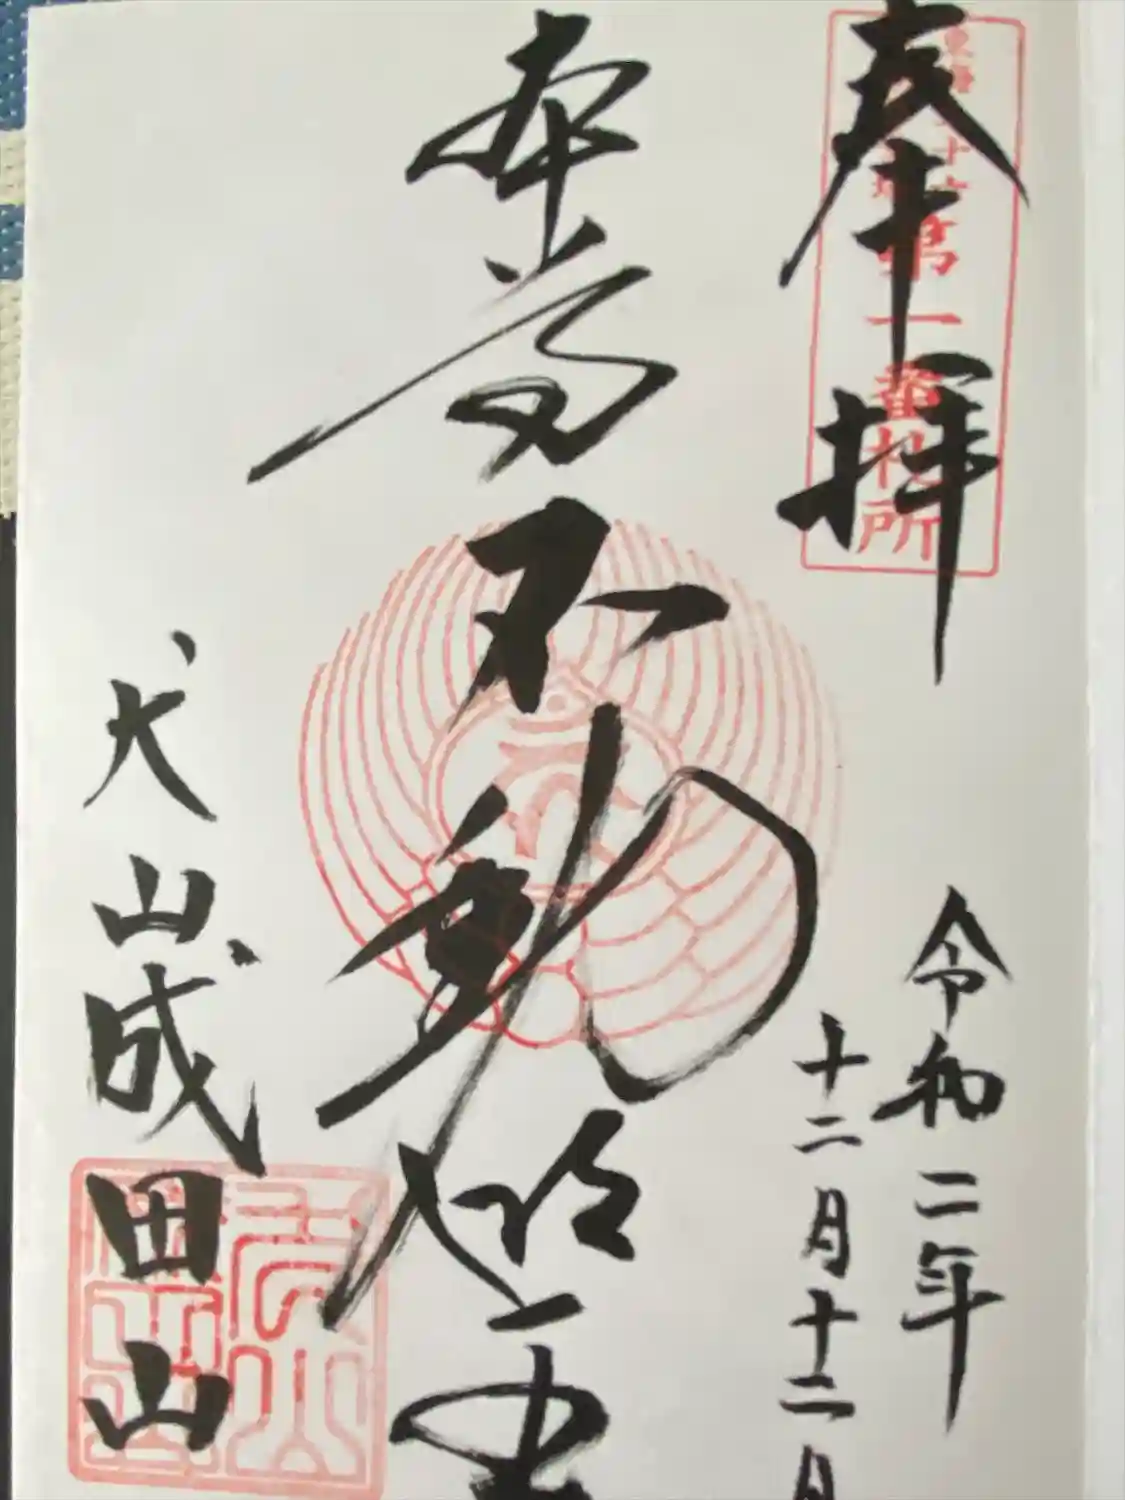 奉拝
第一番札所
令和二年
十二月十二日
本尊不動明王
犬山成田山